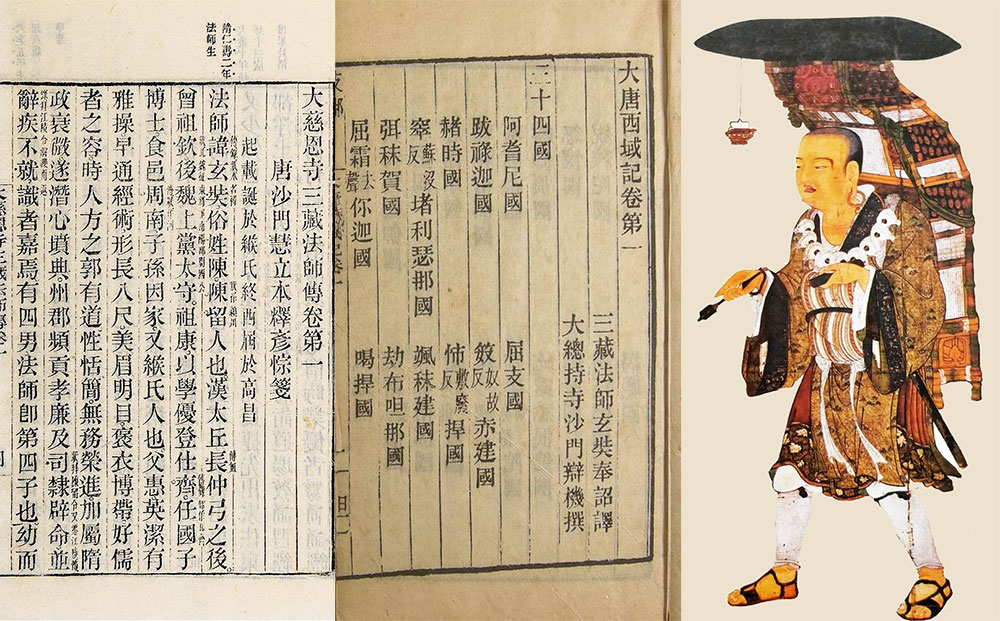 隋仁壽二年
法師生
大慈恩寺三藏法師傳卷第一
唐沙門慧立本釋彥悰箋
起載誕於緱氏終西屆於高昌
法師諱玄奘俗姓陳陳留人也漢太丘長仲弓之後
曾祖欽後魏上黨太守。祖康以學優登仕齊。任國子
博士食邑周南子孫因家又緱氏人也父惠英潔有
雅操早通經術形長八尺美眉明目。褒衣博帶。好儒
者之容時人方之郭有道性恬簡。無務榮進。加屬隋
政衰微遂潛心墳典。州郡頻貢孝廉及司隸辟命並
辭疾不就。識者嘉焉。有四男法師即第四子也幼而
大唐西域記卷第一
三藏法師玄奘奉詔譯
大總持寺沙門辯機撰
三十四國
阿耆尼國 屈支國
跋祿迦國 笯奴故反赤建國
赭時國 㤄敷廢反捍國
窣蘇沒反堵利瑟那國 颯秣建國
弭秣賀國 劫布呾那國
屈霜聲你迦國 喝捍國